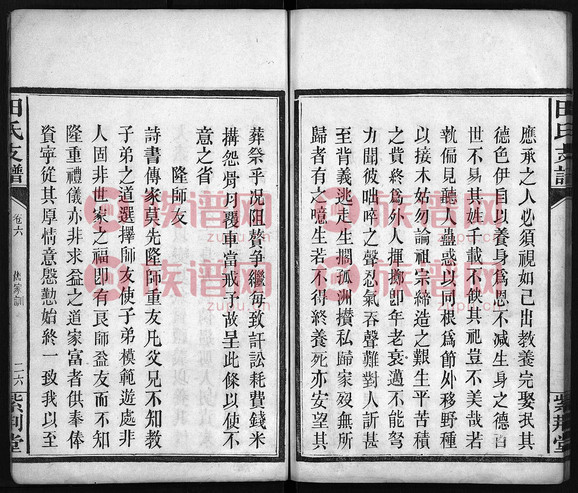 田氏支譜
應承之人必須視如己出教養完娶氓其
德色伊旨以養身爲恩不減生身之德百
世不易其姓千載不飲其祀豈不美哉若
執偏見聽人蠱惑以同根爲節外移野種
以接木始勿論祖宗締造之艱生平苦積
之貲終爲外人揮撫即年老衰邁不能努
力聞彼咄啐之聲忍氣吞聲難對人訴甚
至背義逃走生撊孤洲攢私歸家歿無所
歸者有之噫生若不得終養死亦安望其
紫荆堂
葬祭乎況阻贅爭繼每致訐訟耗費錢米
搆怨骨月覆車當戒子故呈此條以使不
意之省
隆師友
詩書傳家莫先隆師重友凡父兄不知敎
子弟之道選擇師友使子弟模範遊處非
人固非世家之福即有良師益友而不知
隆重禮儀亦非求益之道家富者供奉俸
資寧從其厚情意慇懃始終一致我以至
田氏支譜
卷六
家訓
二六
紫荆堂
族谱网
zupu.cn